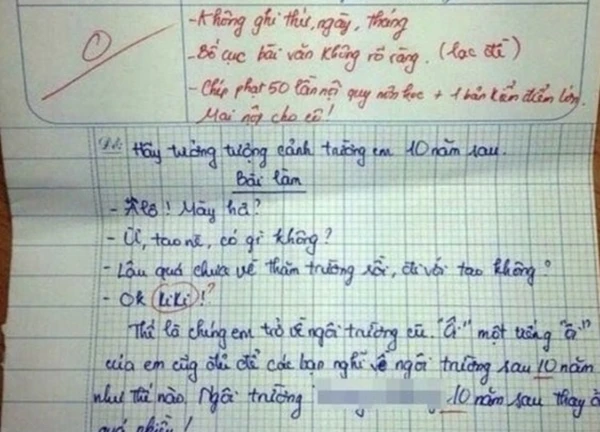 0
- Không ghi thứ, ngày, tháng
- Bố cục bài văn không rõ ràng. (lạc đề)
- Chép phạt 50 lần nội quy môn học + 1 bản kiểm điểm lớn.
Mai nộp cho cô!
Đề: Hãy tưởng tượng cảnh trường em 10 năm sau.
Bài làm
- Alô! Mày hả?
- Ừ, tao nè, có gì không?
- Lâu quá chưa về thăm trường rồi, đi với tao không?
- Ok kiki!?
Thế là chúng em trở về ngôi trường cũ. "Á" một tiếng "á"
của em cũng đủ để các bạn nghĩ về ngôi trường sau 10 năm
như thế nào. Ngôi trường 10 năm sau thay
quá nhiều!